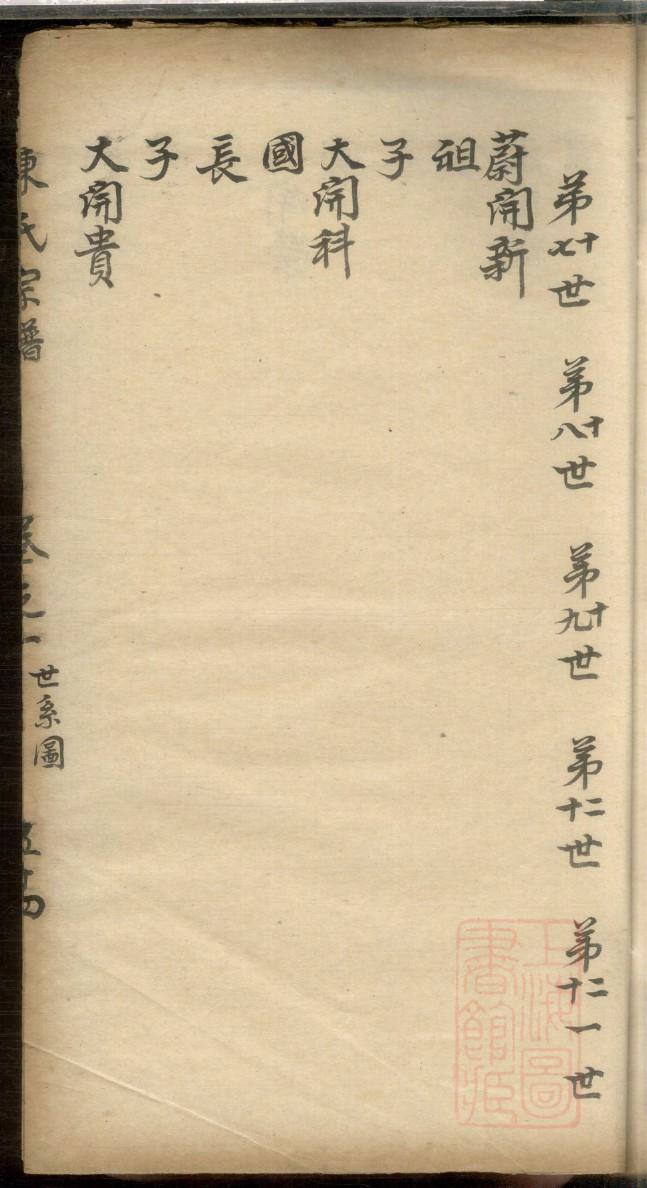 第十七世 第十八世 第十九世 第二十世 第二十一世
蔚開新
祖
子
大開科
國
長
子
大開貴
陳氏宗譜 卷之一 世系圖 五十四
上海圖書館藏